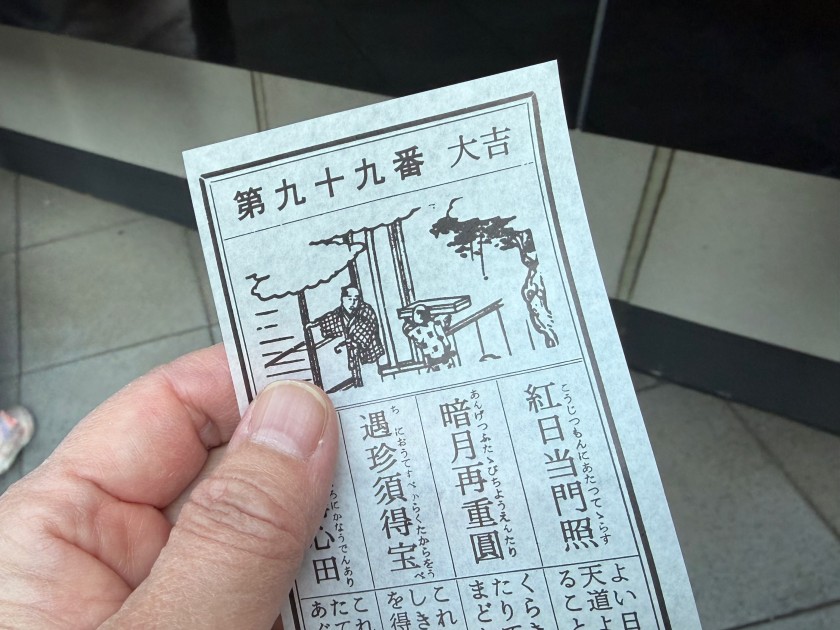 第九十九番 大吉
こうじつもんにあたつてゝらす
紅日当門照
あんげつふたゝびちようえんたり
暗月再重圓
遇珍須得宝
ろにかなうでんあり
心田
よい日
天道よ
ること
くらき
たり
まど
これ
しき
を得
これ
たて